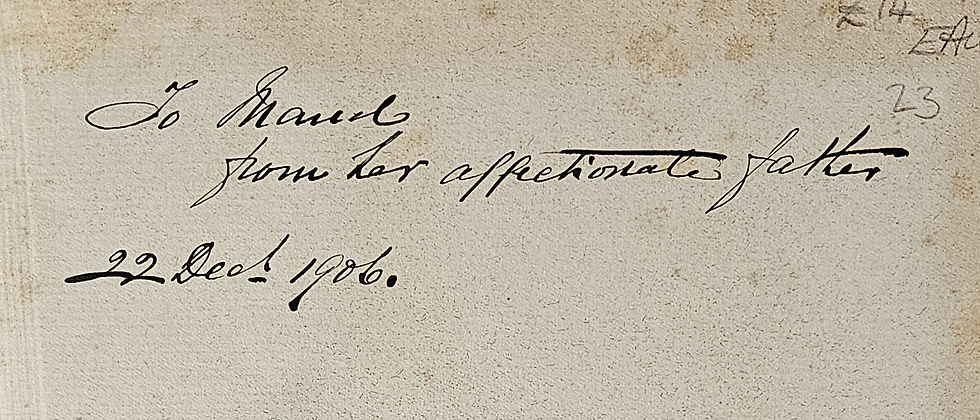 £14
EAC
23
To Maud
from her affectionate father
22 Decr 1906.